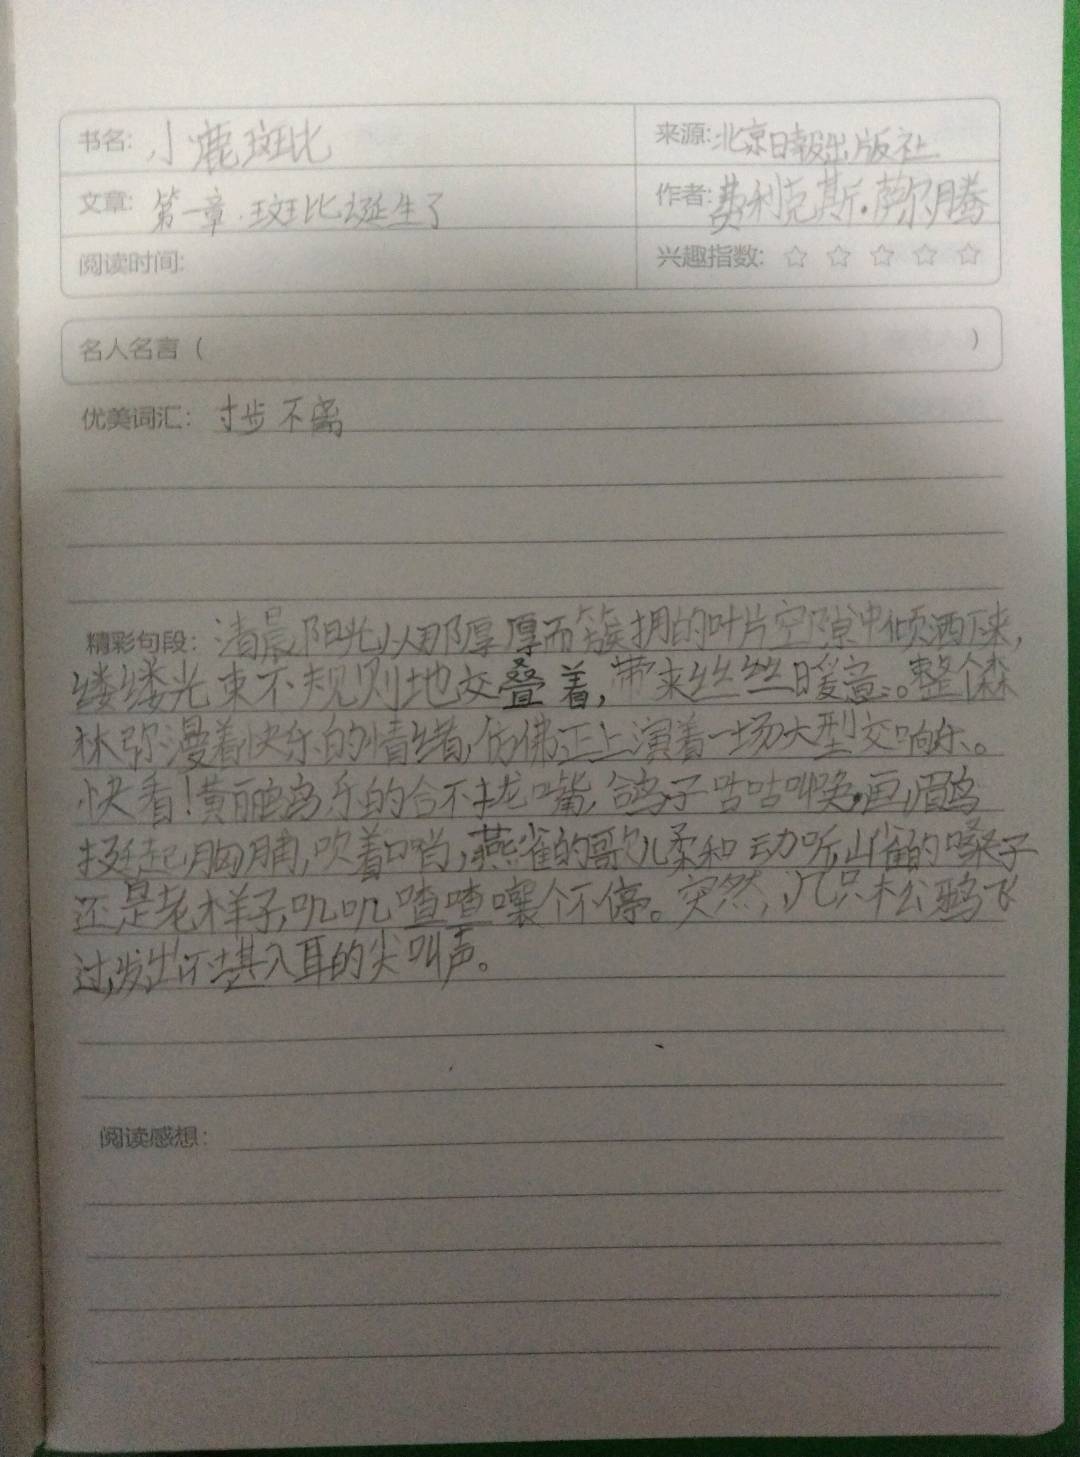 书名: 小鹿斑比
来源: 北京日报出版社
文章: 第一章·斑比诞生了
作者: 费利克斯·萨尔腾
阅读时间:
兴趣指数: ☆ ☆ ☆ ☆ ☆
名人名言 ( )
优美词汇: 寸步不离
精彩句段: 清晨,阳光从那厚厚而簇拥的叶片空隙中倾洒下来,
缕缕光束不规则地交叠着,带来丝丝暖意。整个森
林弥漫着快乐的情绪,仿佛正上演着一场大型交响乐。
快看!黄丽鸟乐的合不拢嘴,鸽子咕咕叫唤,画眉鸟
挺起胸脯,吹着口哨,燕雀的歌儿柔和动听,山雀的嗓子
还是老样子,叽叽喳喳嚷个不停。突然,几只松鸦飞
过,发出不堪入耳的尖叫声。
阅读感想: